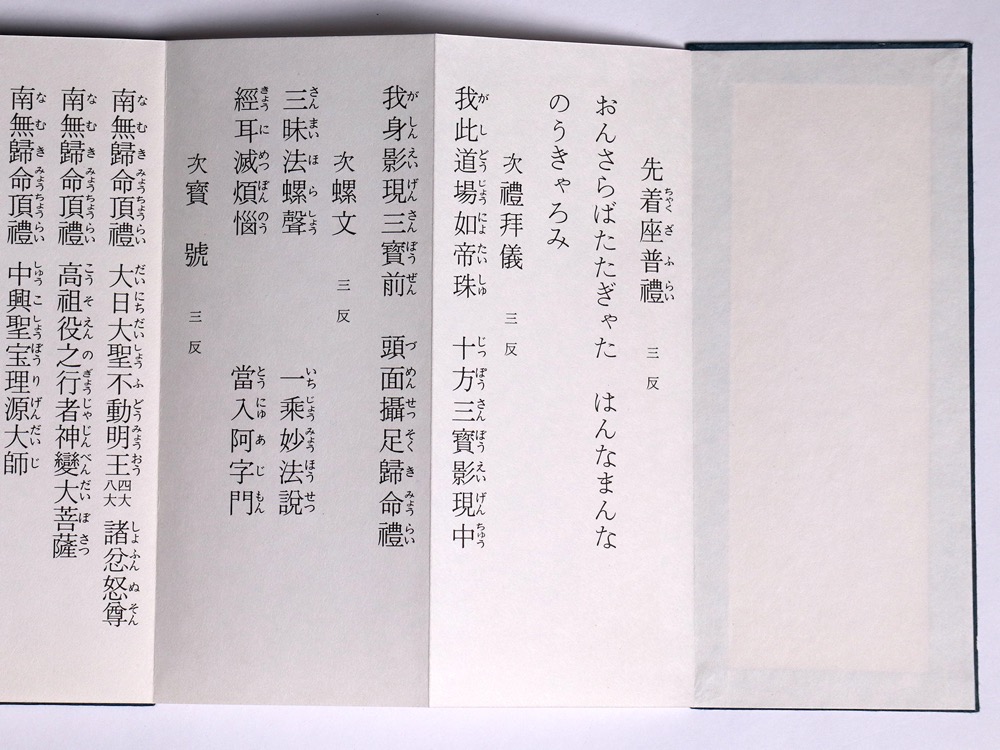 先着座普禮 三反
おんさらばたたぎゃた はんなまんな
のうきゃろみ
次禮拜儀 三反
我此道場如帝珠 十方三寳影現中
我身影現三寳前 頭面攝足歸命禮
次螺文 三反
三昧法螺聲 一乘妙法說
經耳滅煩惱 當入阿字門
次寳號 三反
南無歸命頂禮 大日大聖不動明王四大八大諸忿怒尊
南無歸命頂禮 高祖役之行者神變大菩薩
南無歸命頂禮 中興聖宝理源大師